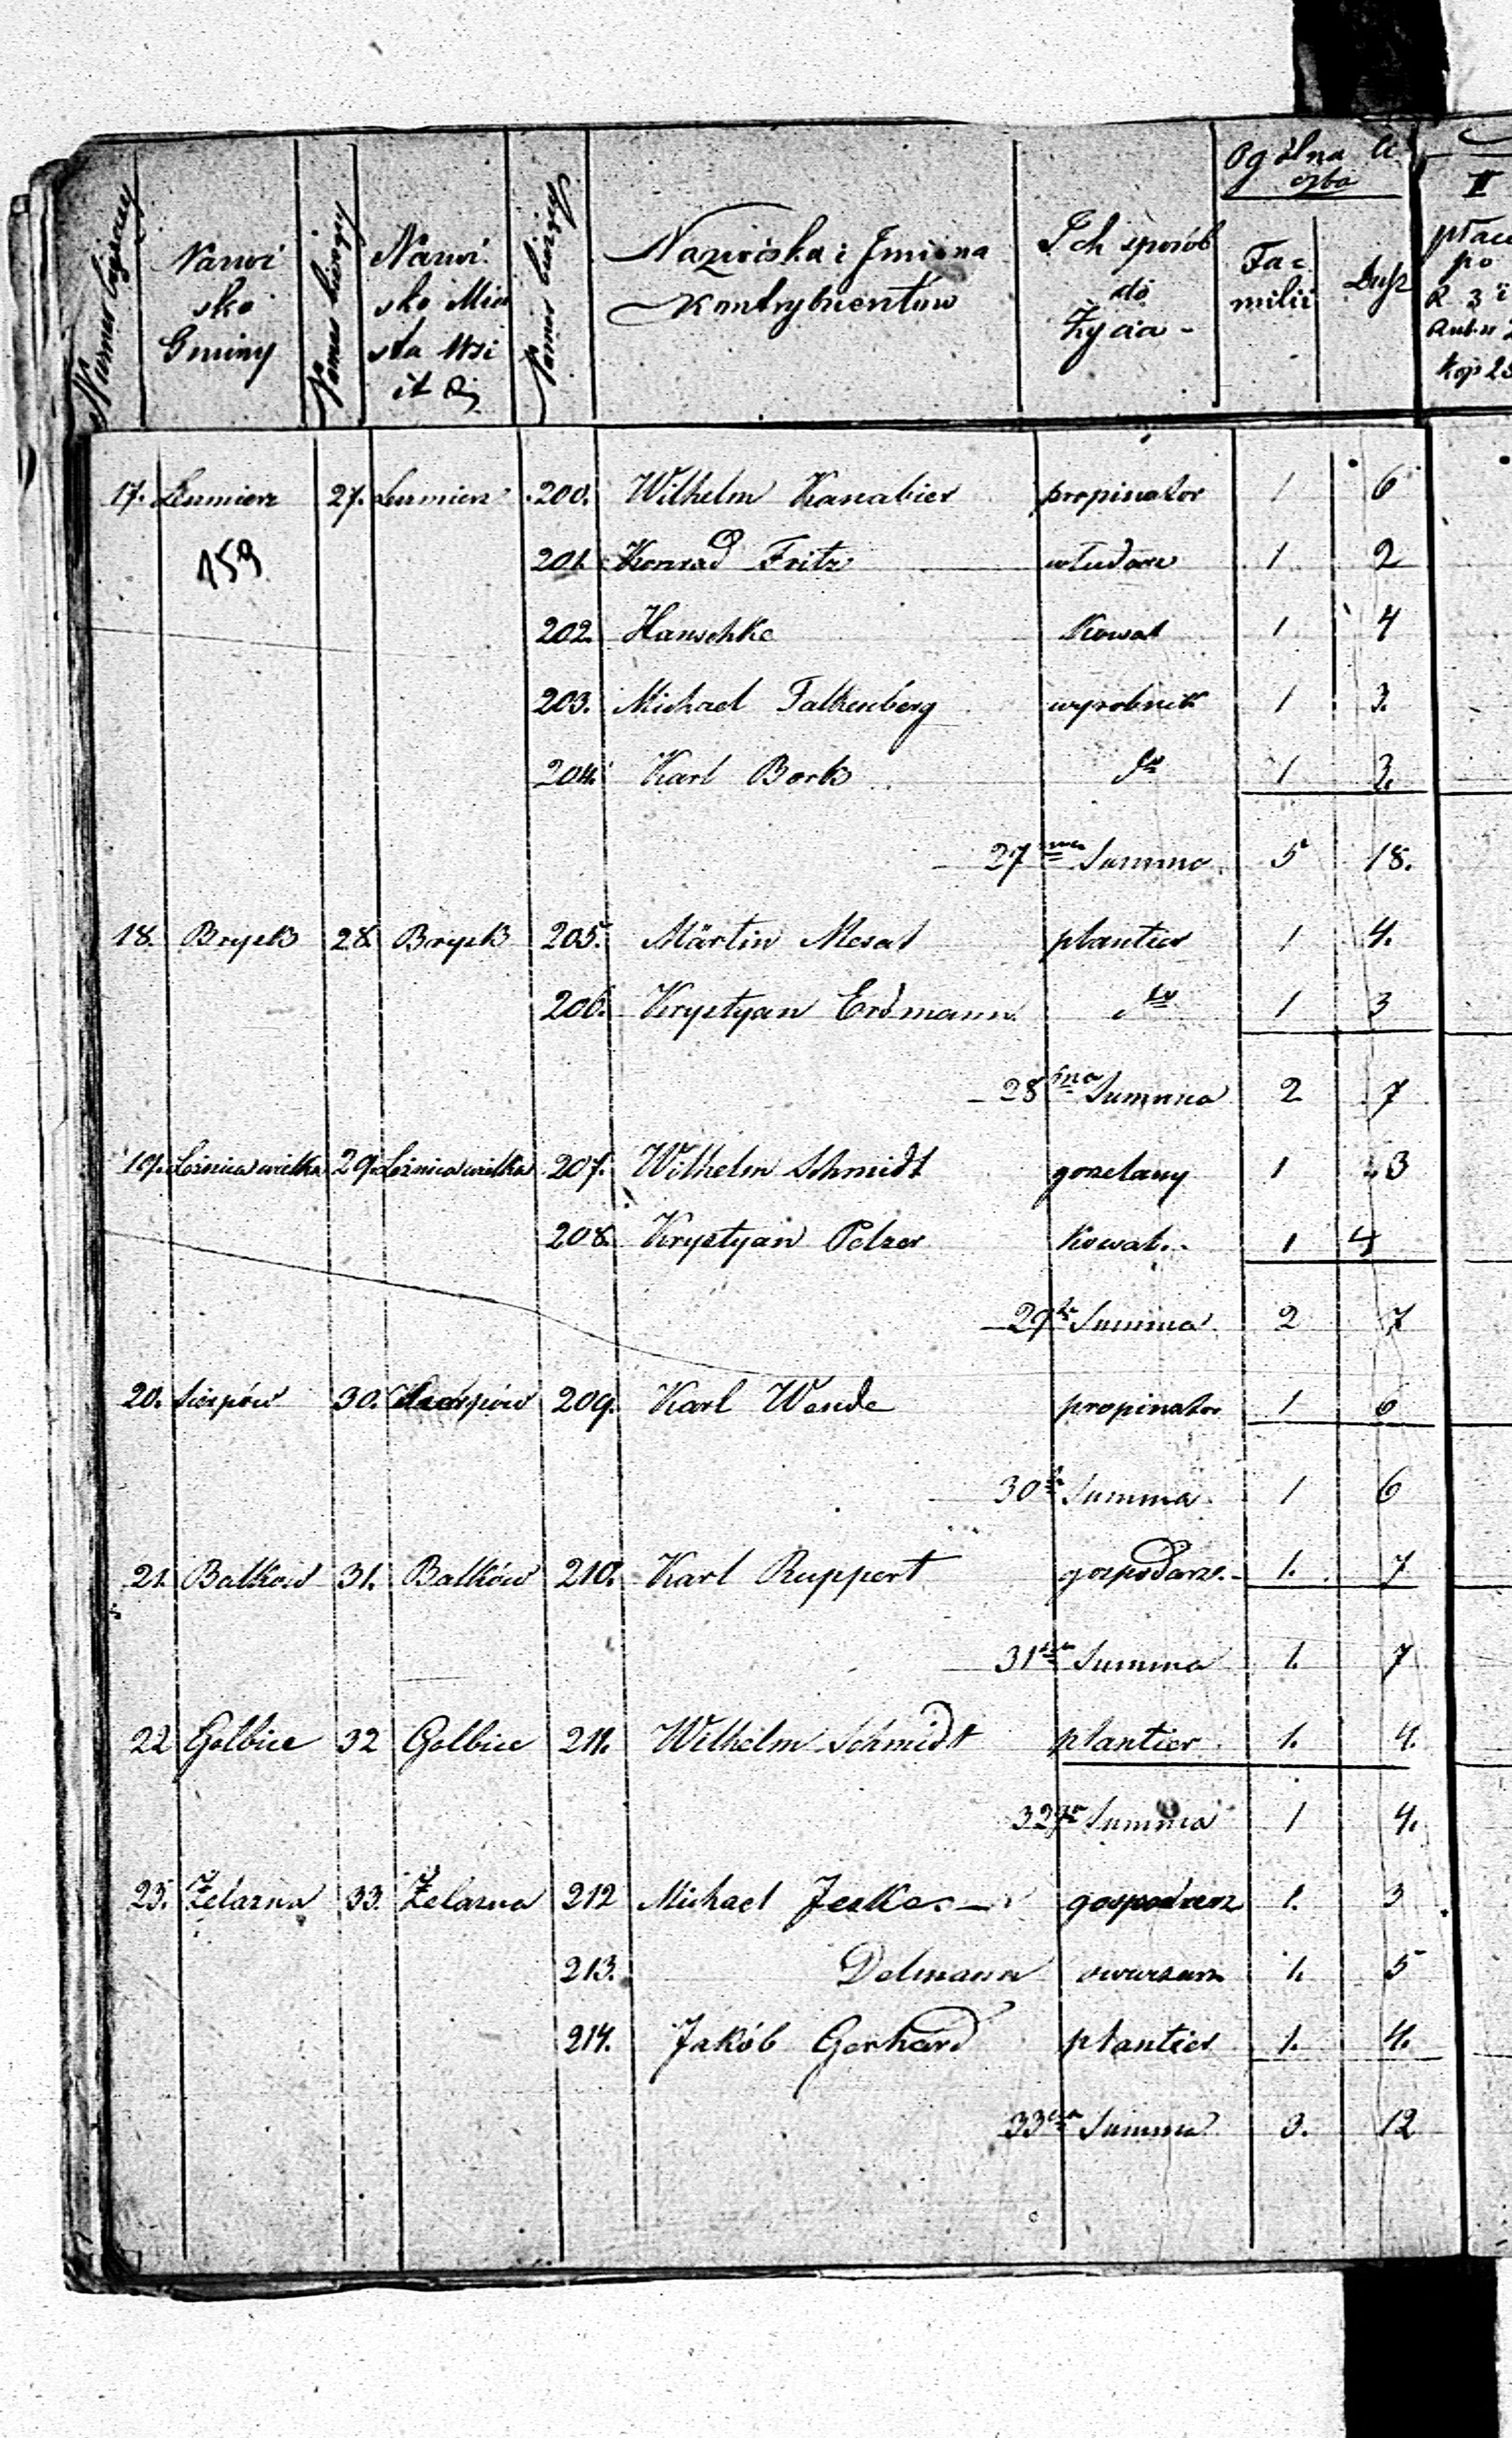 Numer bieżący
Nazwi
sko
Gminy
Numer bieżący
Nazwi
sko Mia
sta Wsi
it d
Numer bieżący
Nazwiska i Jmiona
Kontrybuentów
Ich sposób
do
Życia -
Ogólna li
czba
Fa=
milii
Dusz
II
płacą
po
R 3 i
Rub
Kop 25
17. Leśmierz 27. Leśmierz 200. Wilhelm Kanabier propinator 1 6
159 201. Konrad Fritz włudarz 1 2
202. Hanschke Kowal 1 4
203. Michael Falkenberg wyrobnik 1 3.
204. Karl Bork do 1 3.
27ma Summa 5 18.
18. Bryzk 28. Bryzk 205. Martin Mesal plantier 1 4.
206. Krystyan Erdmann do 1 3
28ma Summa 2 7
19. Leźnica wielka 29. Leźnica wielka 207. Wilhelm Schmidt gorzelany 1 3
208. Krystyan Pelzer Kowal. 1 4
29ta Summa 2 7
20. Sierpów 30. Sierpów 209. Karl Wende propinator 1 6
30ta Summa 1 6
21. Balkow 31. Balków 210. Karl Ruppert gospodarz.- 1. 7
31sza Summa 1. 7
22 Golbice 32 Golbice 211. Wilhelm Schmidt plantier 1. 4.
32ga Summa 1 4.
23. Żelazna 33. Żelazna 212 Michael Jeske. — gospodarz 1. 3
213. Delmann owczarz 1. 5
214. Jakób Gerhard plantier 1. 4.
33cia Summa 3. 12